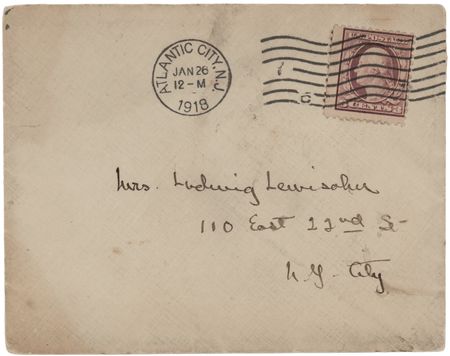 ATLANTIC CITY, N.J.
JAN 26
12-M
1918
Mrs. Ludwig Lewisohn
110 East 22nd St
N.Y. City